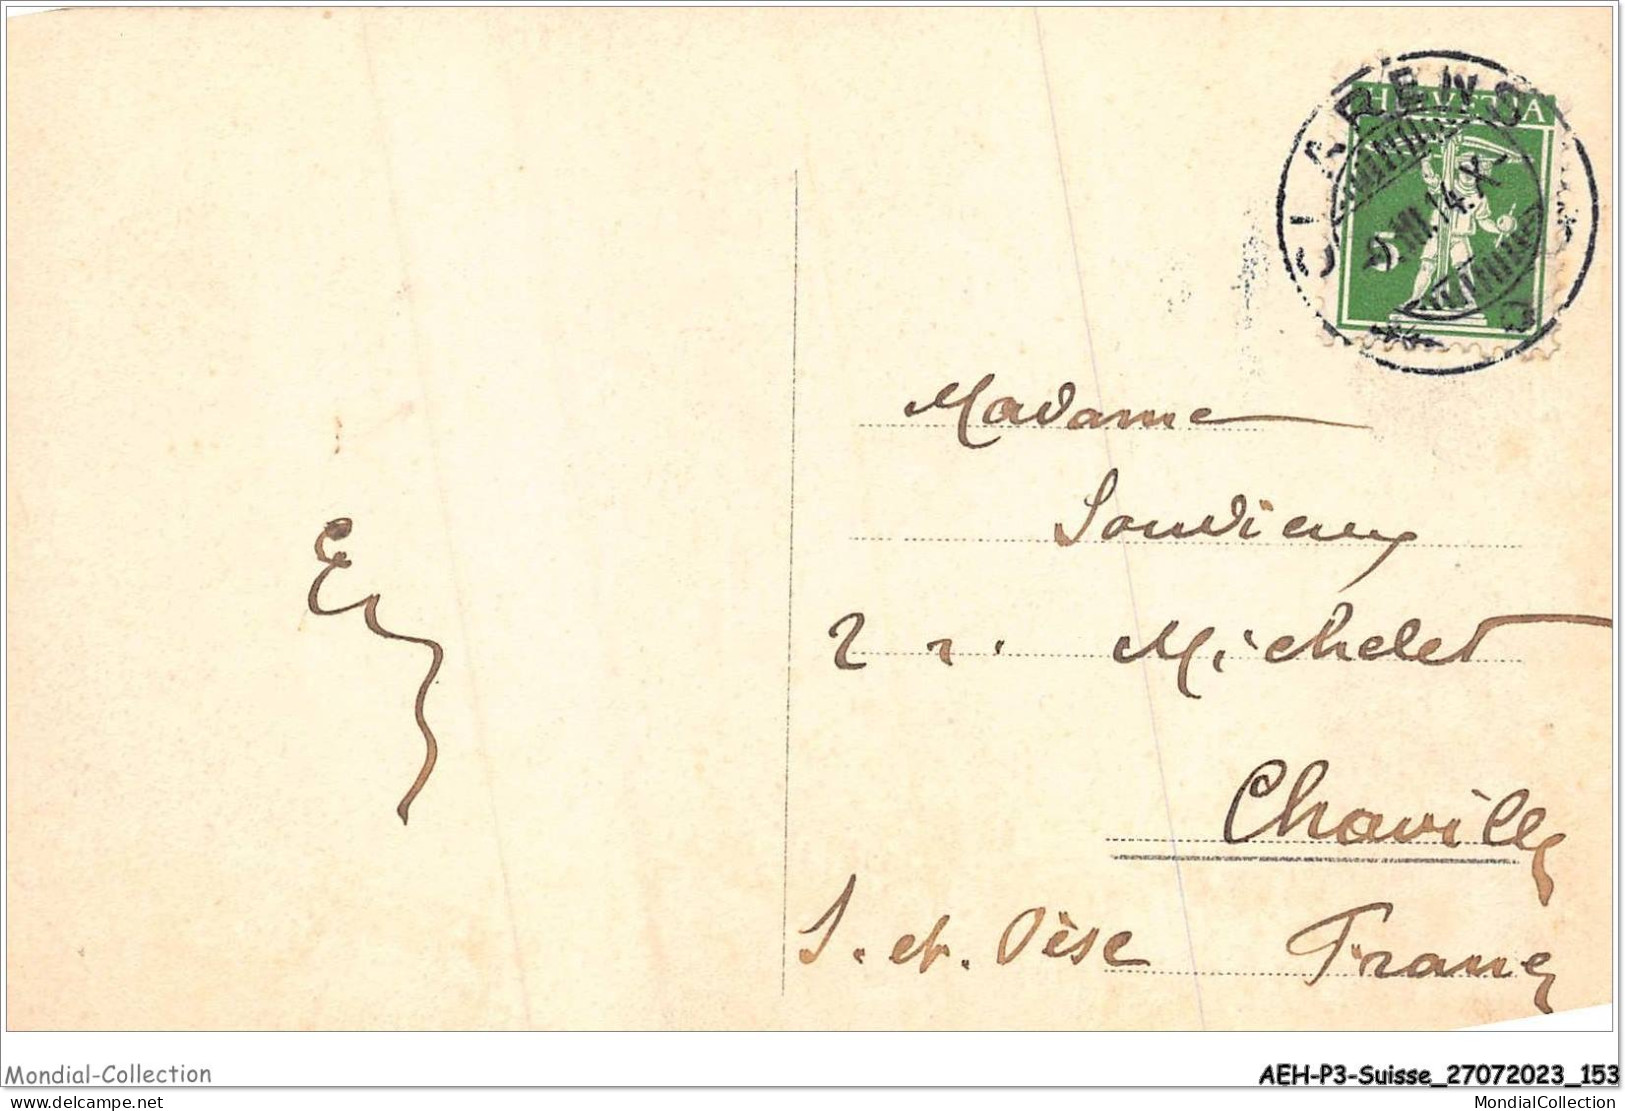 CLARENS
HELVETIA
5
-9.III.14.X-
Madame
Souvieux
2 r. Michelet
Chaville
S. et. Oise France
Mondial-Collection
AEH-P3-Suisse_27072023_153
www.delcampe.net
MondialCollection